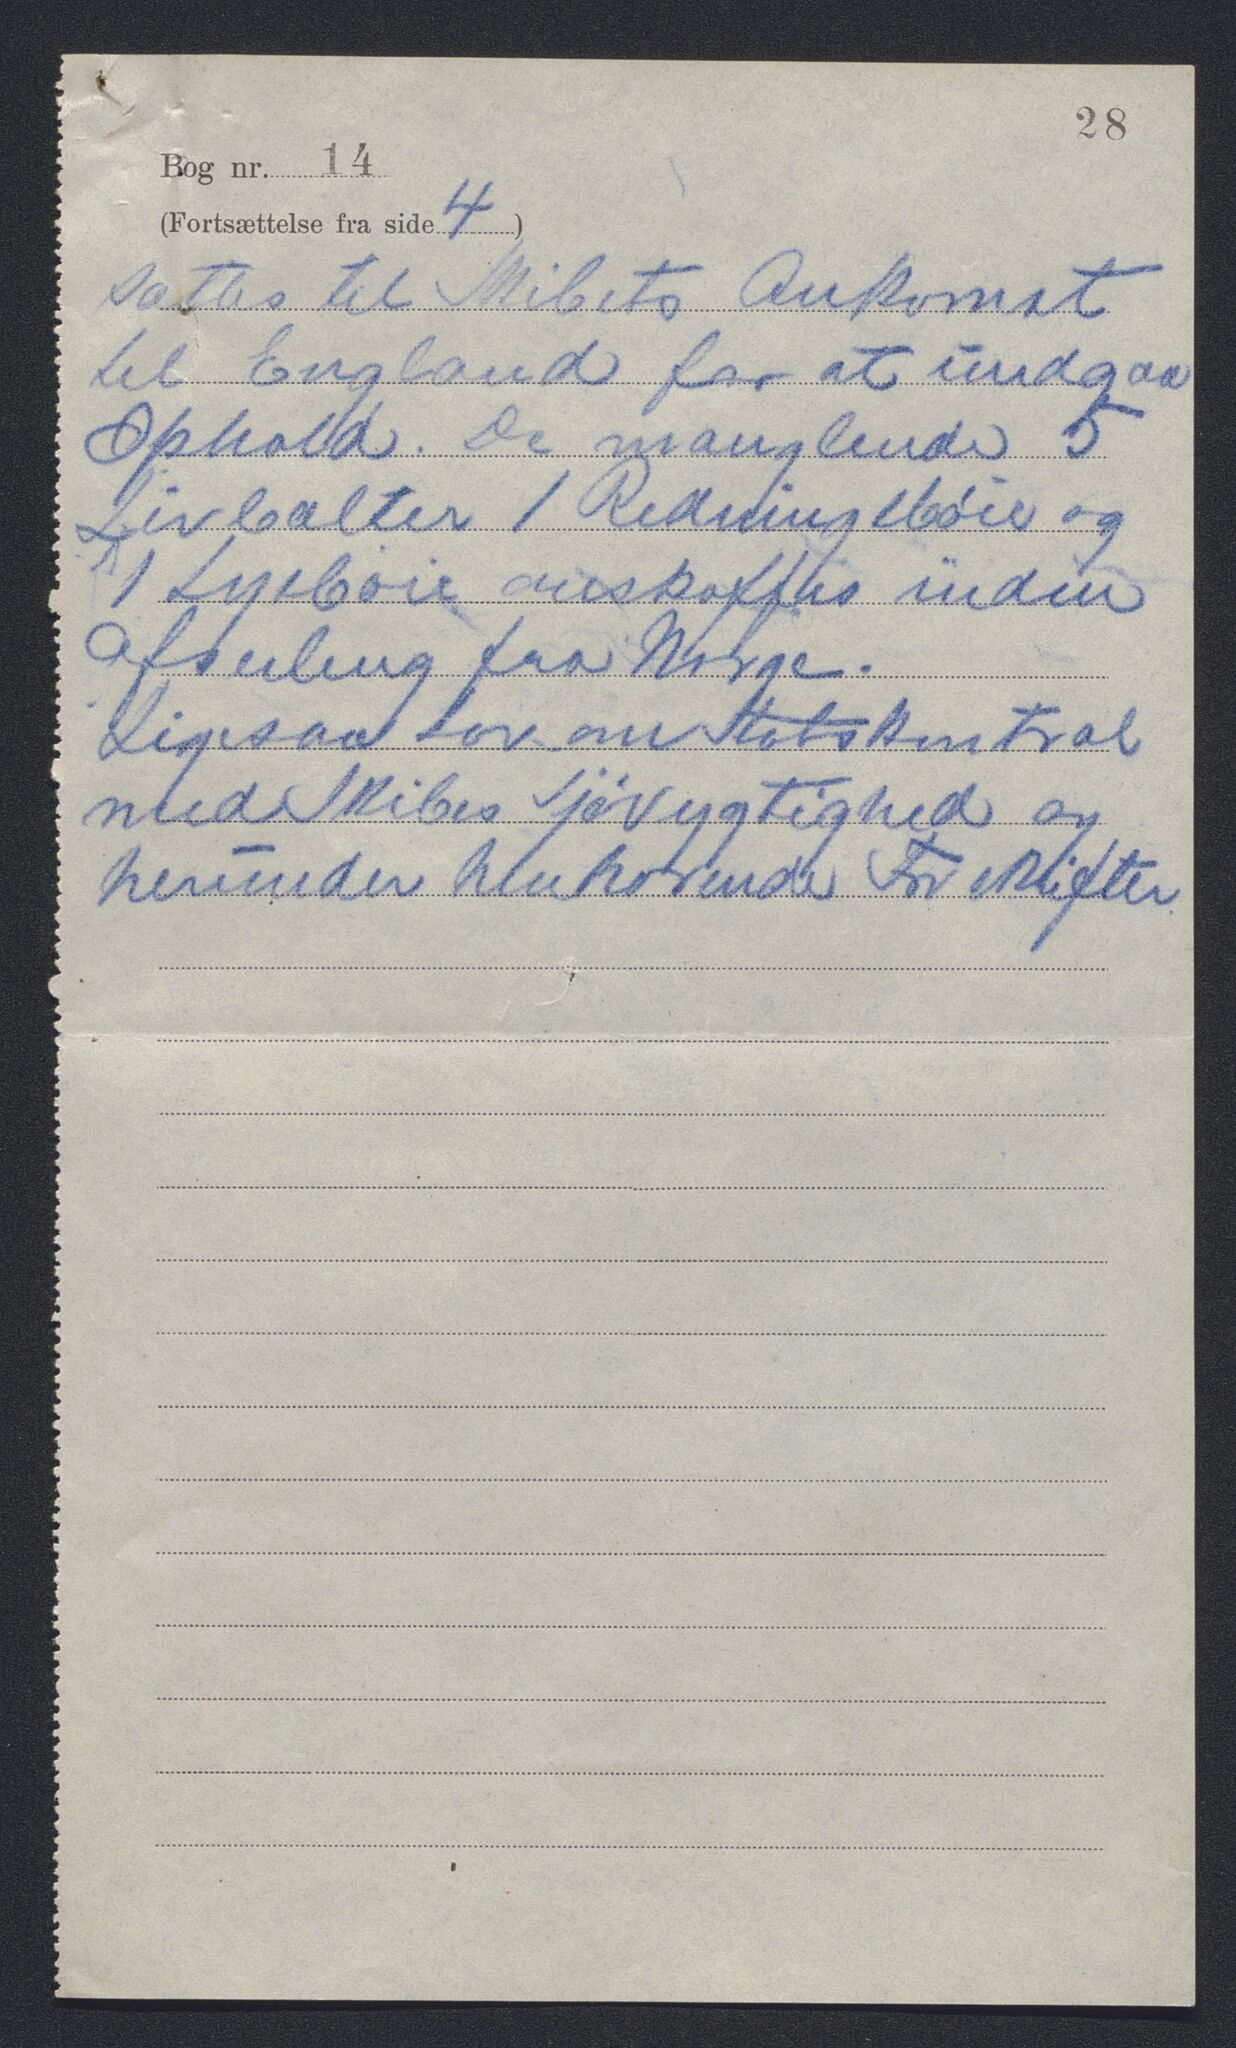 28
Bog nr. 14
(Fortsættelse fra side 4)
sættes til Skibets Ankomst
til England for at undgaa
Ophold. De manglende 5
Livbælter 1 Redningsbøie og
1 Lysbøie anskaffes inden
Afseiling fra Norge.
Ligesaa Lov om Statskontrol
med Skibes Sjødygtighed og
herunder henhørende Forskrifter